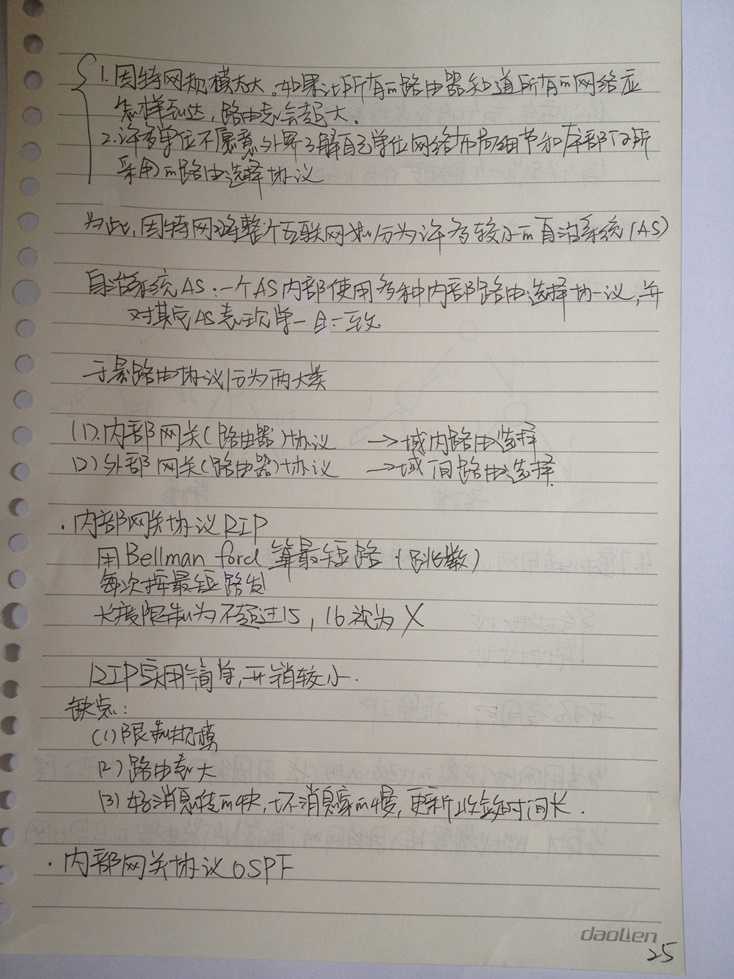 1.因特网规模太大。如果让所有的路由器知道所有的网络应
怎样到达，路由表会超大。
2.许多单位不愿意外界了解自己单位网络布局细节和本部门所
采用的路由选择协议
为此，因特网将整个互联网划分为许多较小的自治系统(AS)
自治系统AS：一个AS内部使用多种内部路由选择协议，并
对其它AS表现单一且一致
于是路由协议分为两大类
(1).内部网关(路由器)协议 →域内路由选择
(2)外部网关(路由器)协议 →域间路由选择
·内部网关协议RIP
用Bellman ford算最短路（跳数）
每次择最短路发
长度限制为不超过15，16次为X
RIP实用简单，开销较小.
缺点：
(1)限制规模
(2)路由表大
(3)好消息传的快，坏消息穿的慢，更新收敛时间长.
·内部网关协议OSPF
daolien
25